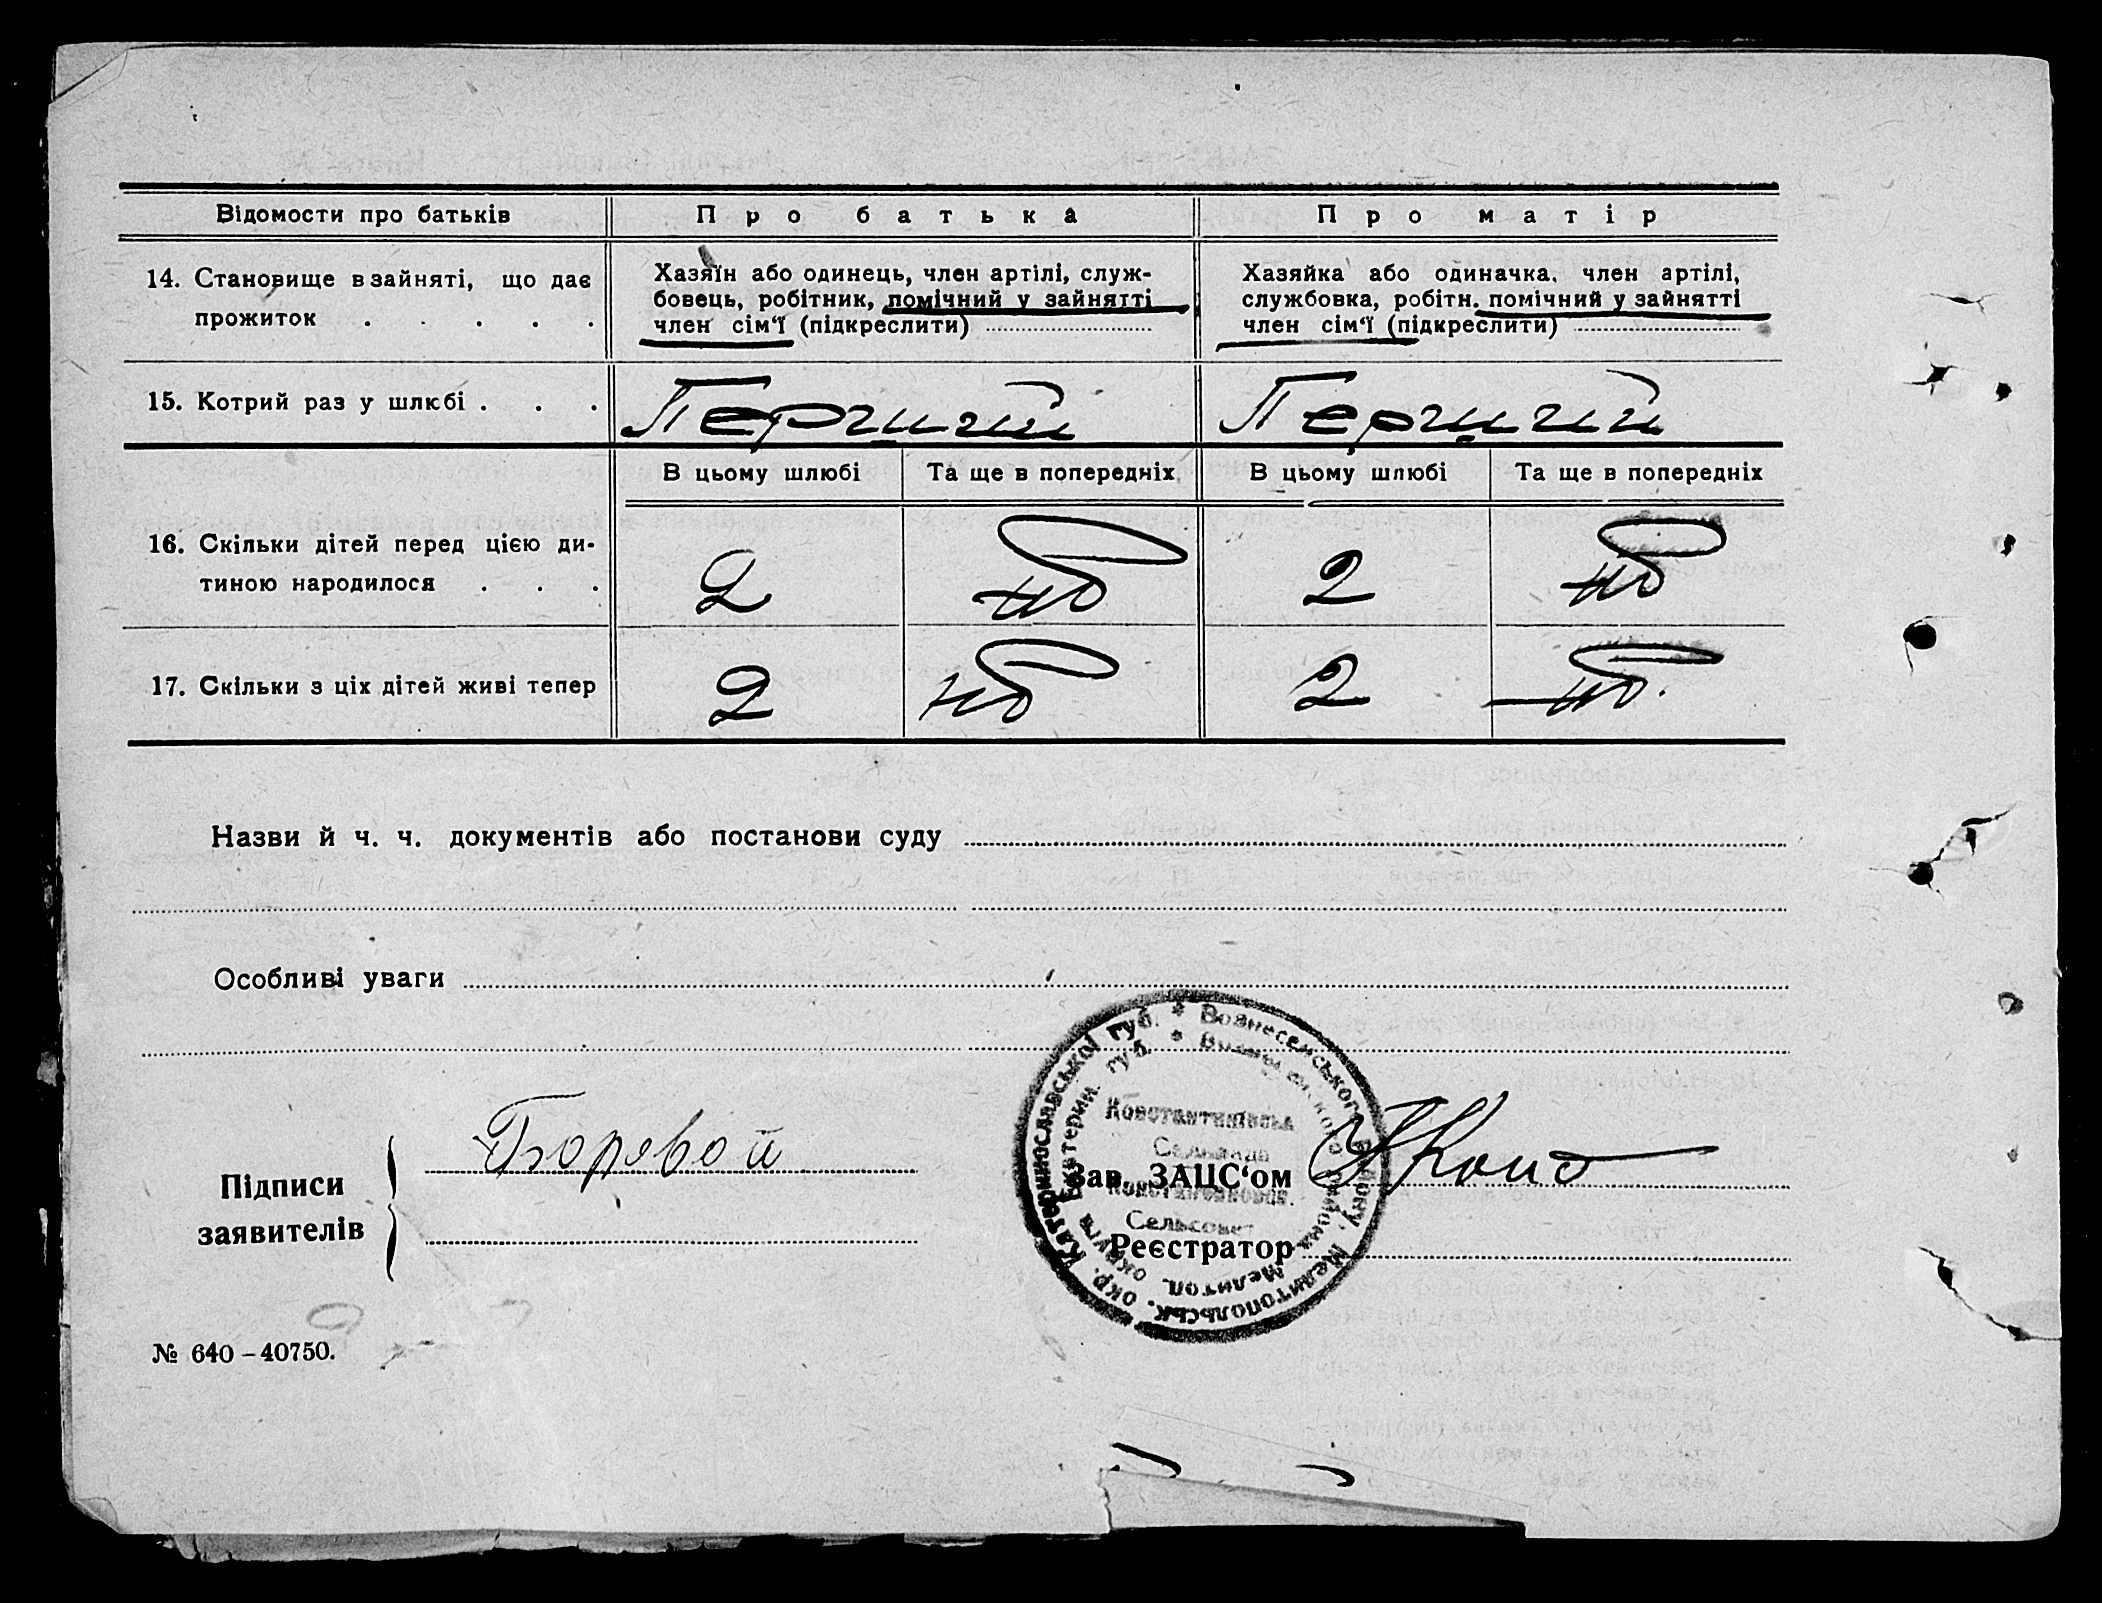 Відомости про батьків
Про батька
Про матір
14. Становище в зайняті, що дає
прожиток . . . . .
Хазяїн або одинець, член артілі, служ-
бовець, робітник, помічний у зайнятті
член сім'ї (підкреслити)
Хазяйка або одиначка, член артілі,
службовка, робітн. помічний у зайнятті
член сім'ї (підкреслити)
15. Котрий раз у шлюбі . . .
В цьому шлюбі
Та ще в попередніх
В цьому шлюбі
Та ще в попередніх
16. Скільки дітей перед цією ди-
тиною народилося . . .
2
2
17. Скільки з ціх дітей живі тепер
2
2
Назви й ч. ч. документів або постанови суду
Особливі уваги
Катеринославської губ. * Вознесенського району, Мелитопольськ. окр.
Екатерин. губ. * округа Мелитоп.
Константинівська
Сельсовет
Підписи
заявителів
Зав. ЗАЦС'ом
Реєстратор
№ 640-40750.